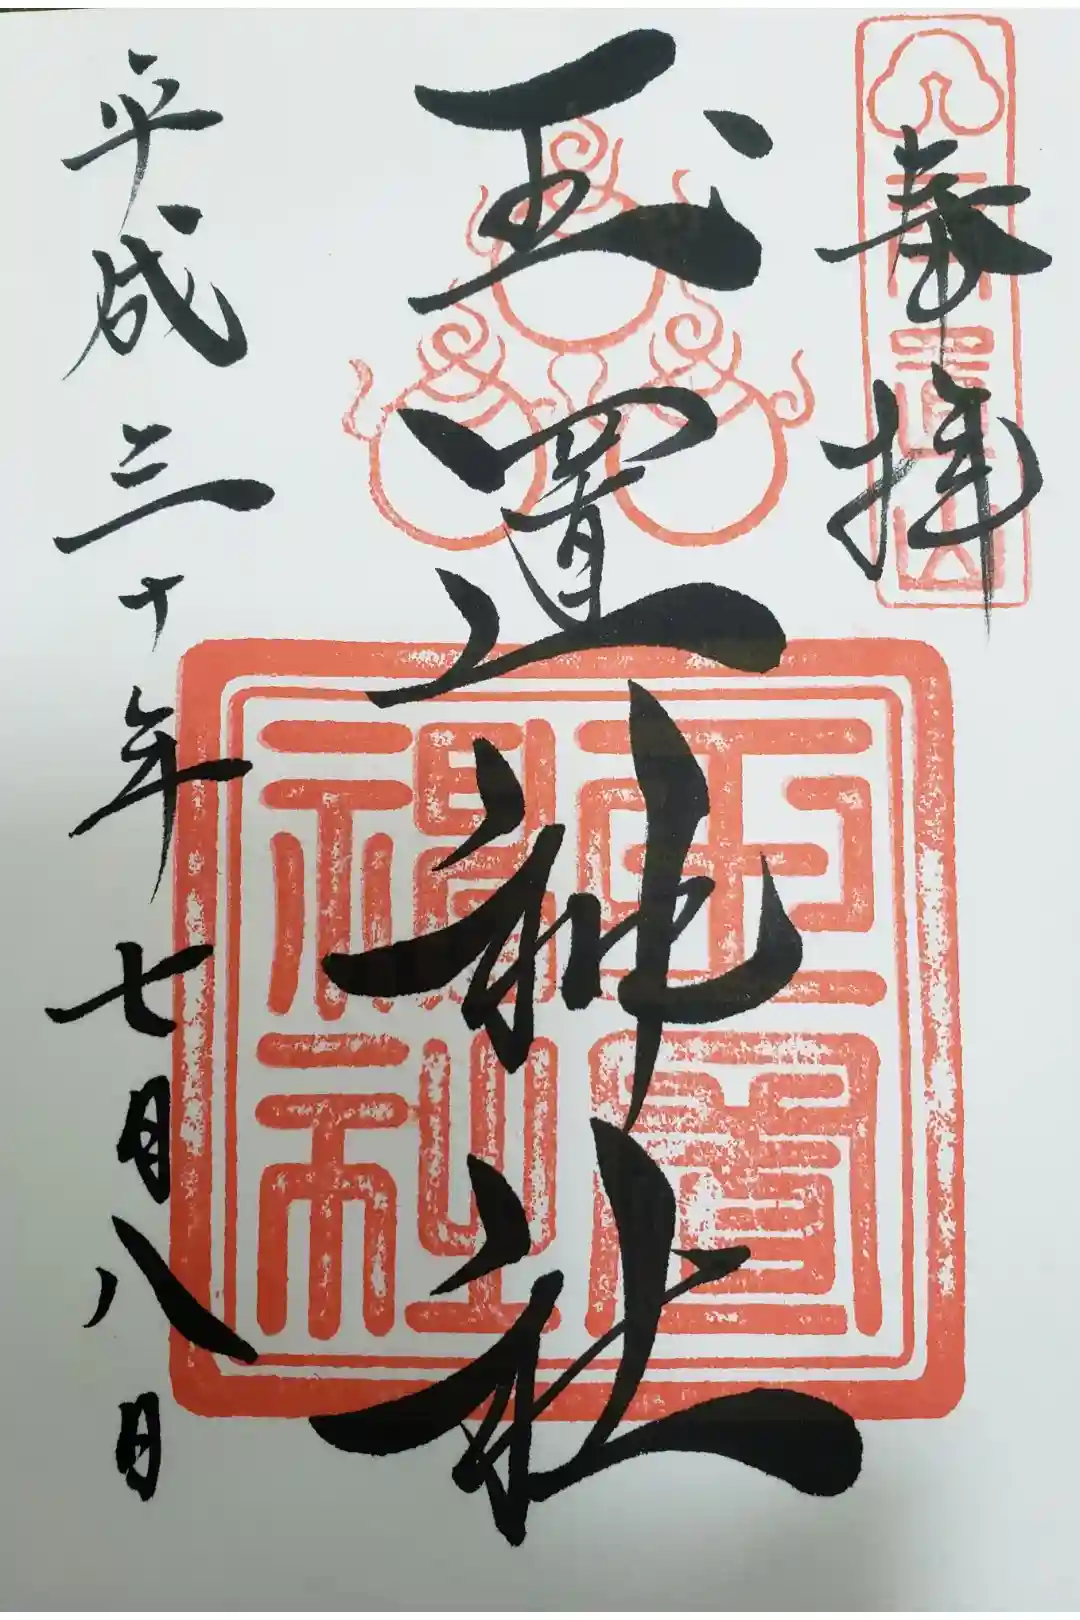 奉拝
玉置神社
平成三十年七月八日
玉置神社